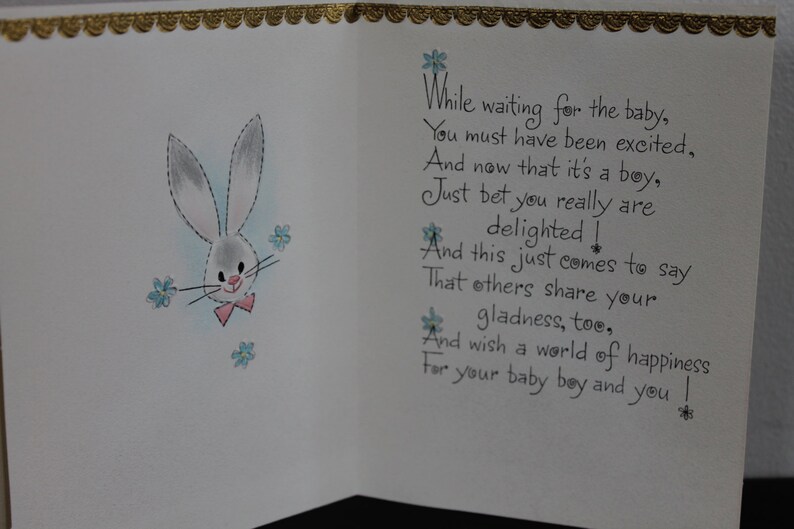 While waiting for the baby,
You must have been excited,
And now that it's a boy,
Just bet you really are
delighted!
And this just comes to say
That others share your
gladness, too,
And wish a world of happiness
For your baby boy and you!